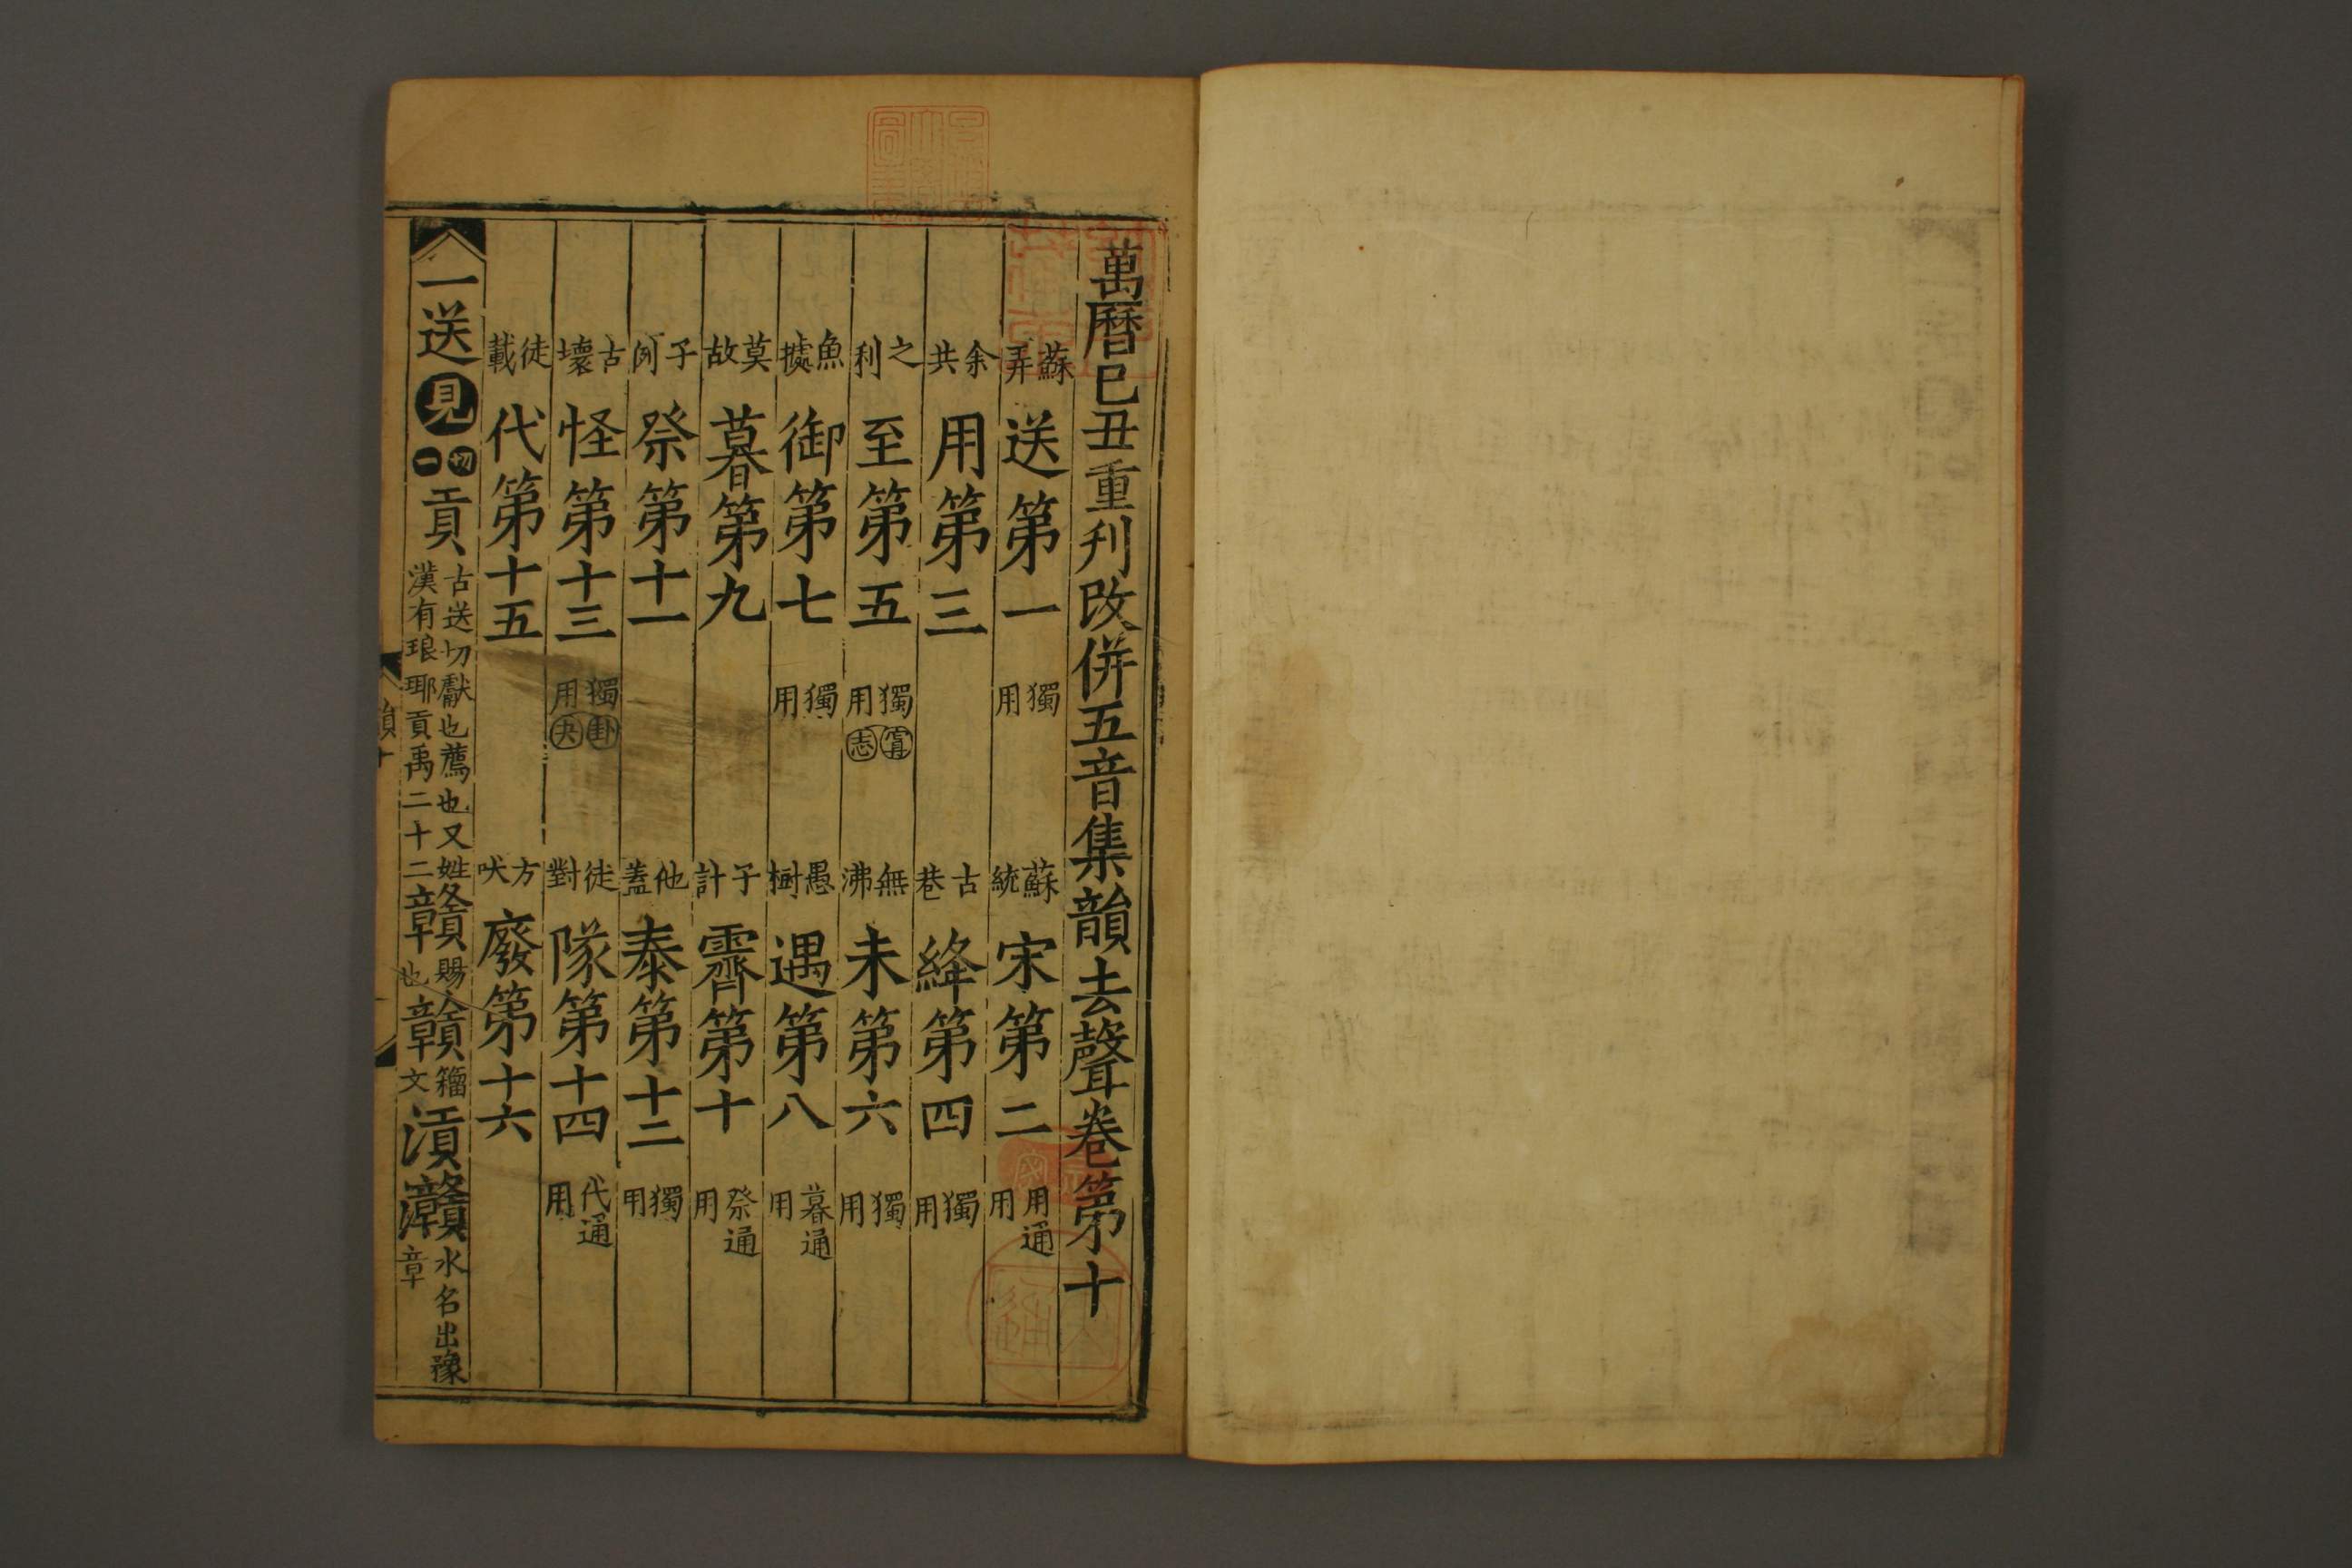 萬曆己丑重刊改併五音集韻去聲卷第十
蘇弄送第一獨用 蘇統宋第二用通用
余共用第三 古巷絳第四獨用
之利至第五獨用寘志 無沸未第六獨用
魚據御第七獨用 愚樹遇第八暮通用
莫故暮第九 子計霽第十祭通用
子例祭第十一 他蓋泰第十二獨用
古壞怪第十三獨用卦夬 徒對隊第十四代通用
徒載代第十五 方吠廢第十六
一送見切一貢古送切獻也薦也又姓漢有琅琊貢禹二十二贛賜也贑籀文湏灨水名出豫章
韻十